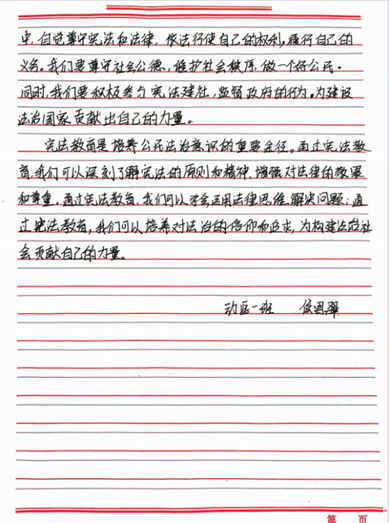 中，自觉遵守宪法和法律，依法行使自己的权利，履行自己的
义务。我们要遵守社会公德，维护社会秩序，做一个好公民。
同时，我们要积极参与宪法建设，监督政府的行为，为建设
法治国家贡献出自己的力量。
宪法教育是培养公民法治意识的重要途径。通过宪法教
育，我们可以深刻了解宪法的原则和精神，增强对法律的敬畏
和尊重，通过宪法教育，我们可以学会运用法律思维解决问题；通
过宪法教育，我们可以培养对法治的信仰和追求，为构建法治社
会贡献自己的力量。
动医一班 侯恩
第 页